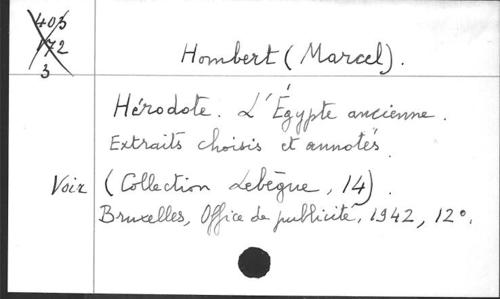 403
172
3
Hombert (Marcel).
Hérodote. L'Égypte ancienne.
Extraits choisis et annotés
Voir (Collection Lebègue, 14).
Bruxelles, Office de publicité, 1942, 12°.